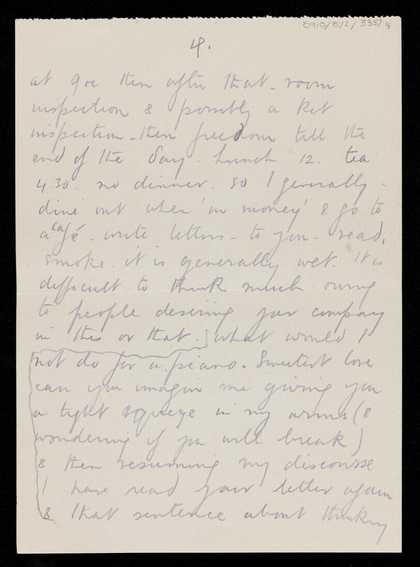 4.
at 9oc then after that - room
inspection & possibly a kit
inspection - then freedom till the
end of the day. Lunch 12. tea
4.30. no dinner. so I generally -
dine out when 'in money' & go to
a café - write letters - to you - read,
smoke. it is generally wet. It is
difficult to think much owing
to people desiring your company
in this or that. What would I
not do for a piano. Sweetest love
can you imagine me giving you
a tight squeeze in my arms (&
wondering if you will break)
& then resuming my discourse
I have read your letter again
& that sentence about thinking